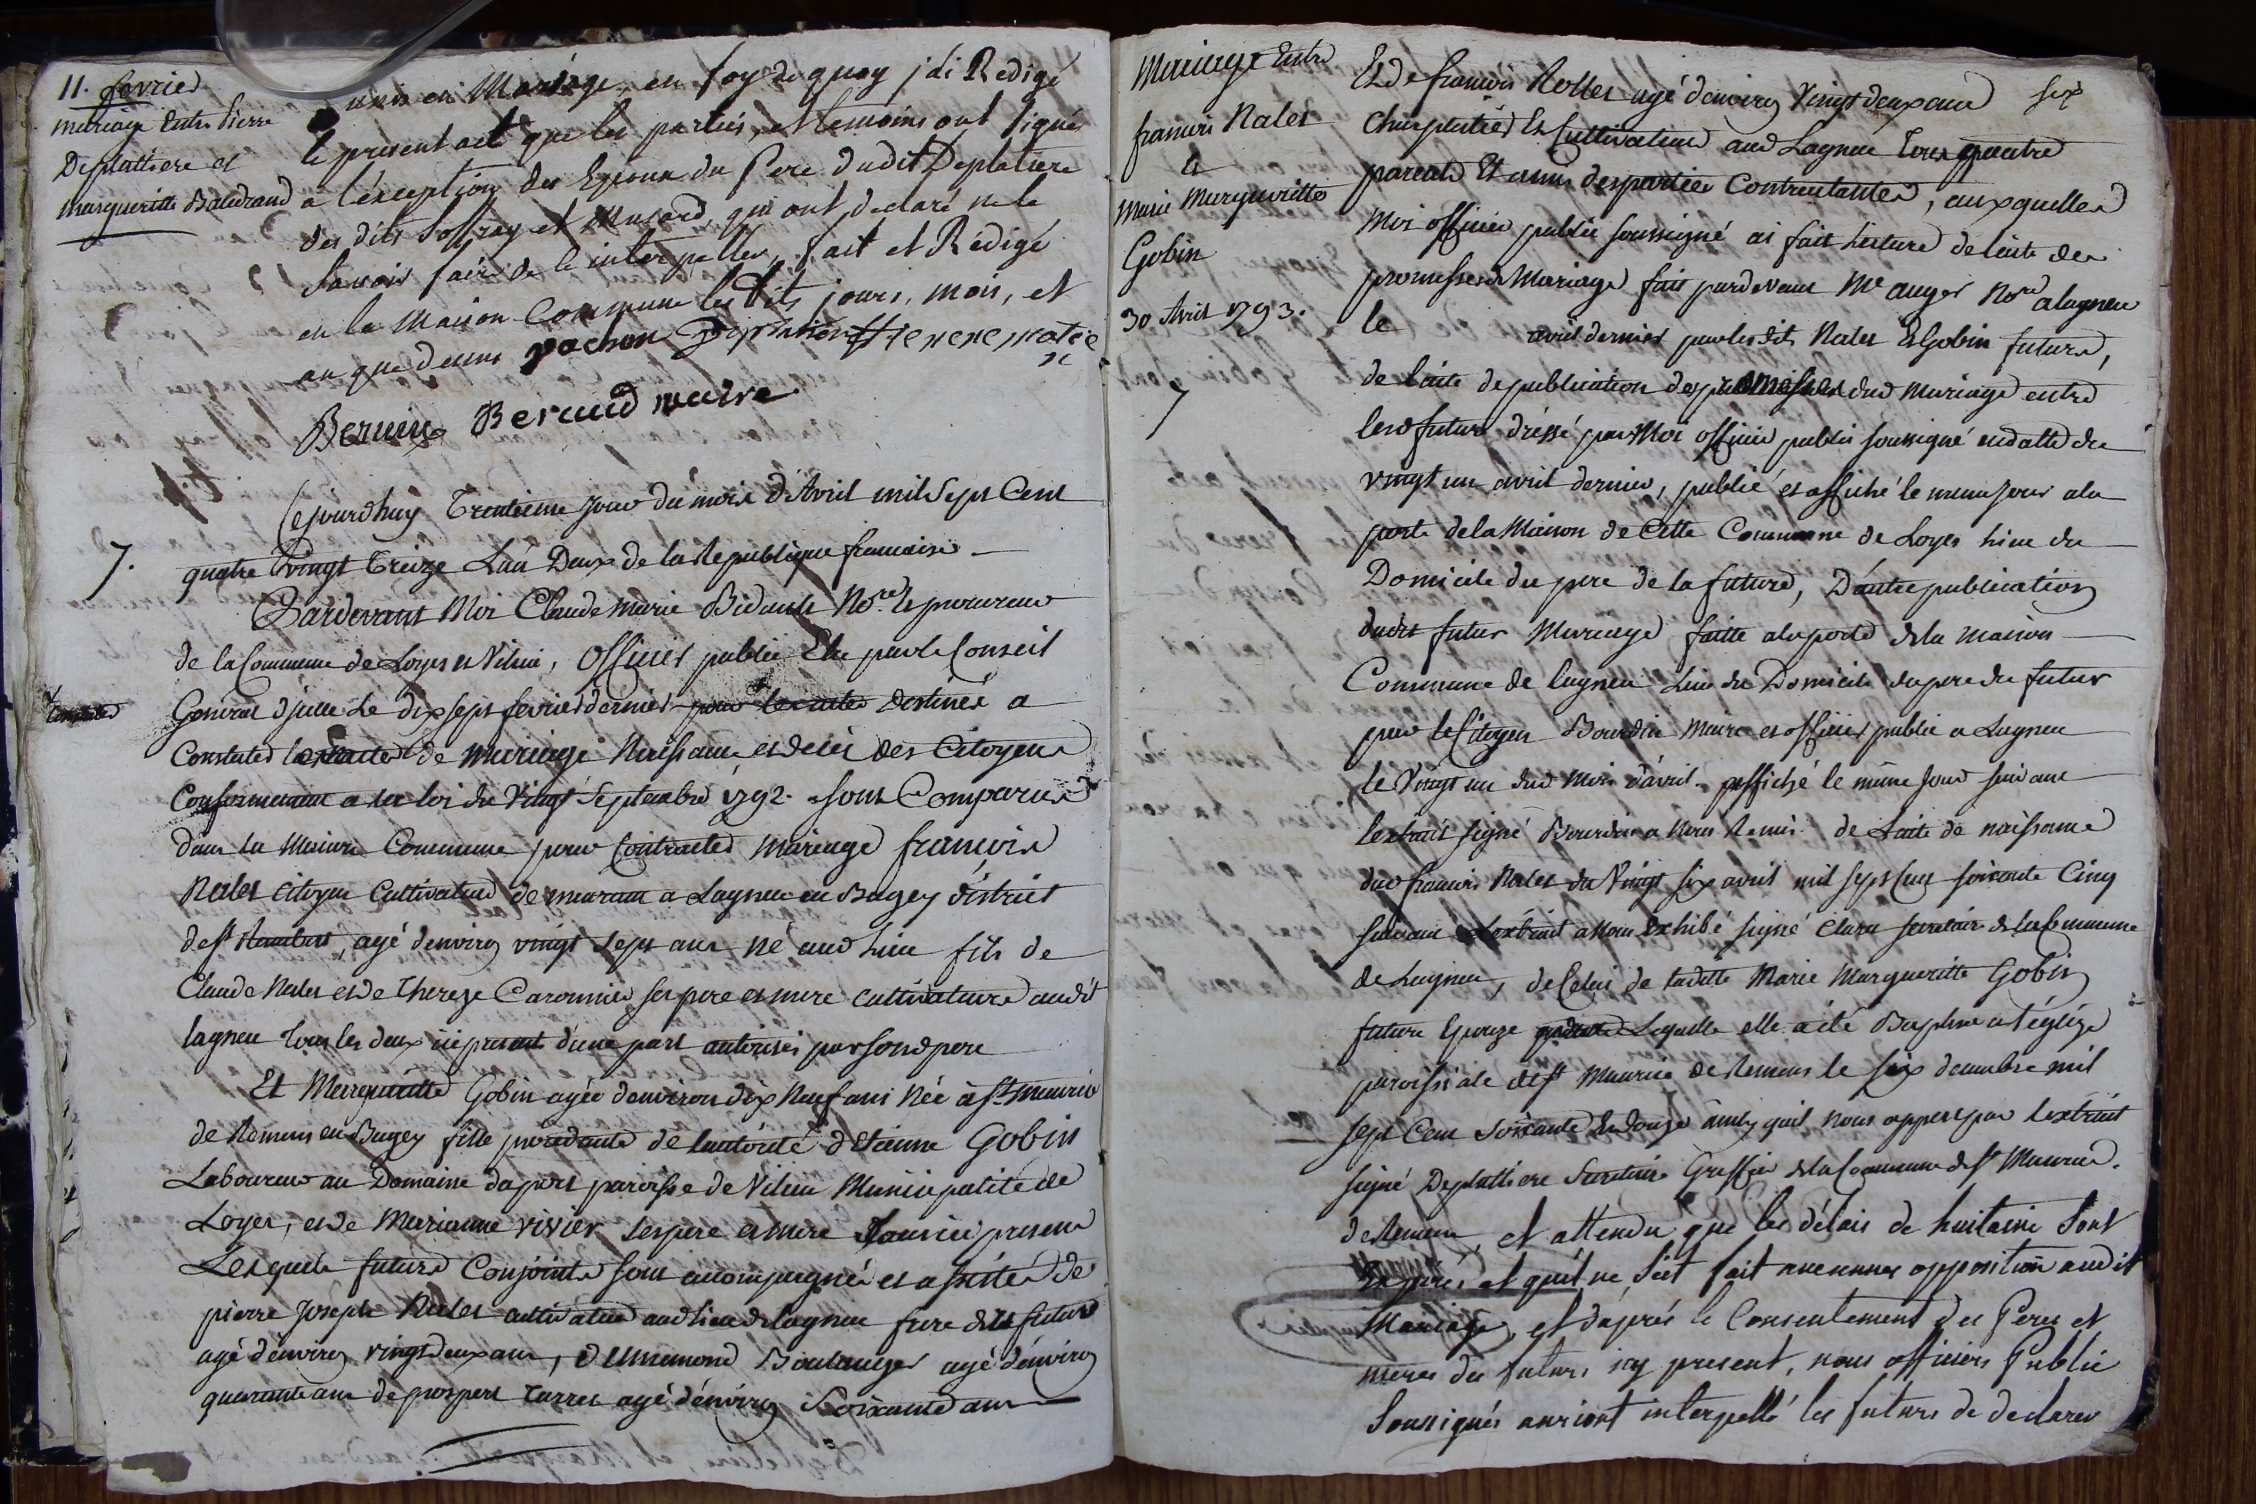 11. fevrier
mariage Entre Pierre
Deplattiere et
margueritte Balandraud
unis en Mariage, en foy de quoy j'ai Redigé
le present act que les parties, et temoins ont signés
a l'éxception des Epoux du Pere dudit Deplatiere
des dits Soffray et Musard, qui ont declaré ne le
savoir faire de ce interpellés, fait et Rédigé
en la Maison Commune les dits jours, mois, et
an que dessus pochon Deplatière
Bernin Beraud maire
7.
Cejourdhuy Trentieme jour du mois d'Avril mil Sept Cent
quatre vingt Treize L'an Deux de la Republique francaise
Pardevant Moi Claude marie Bidault No.re et procureur
de la Commune de Loyes et Vilieu, Officier public Elu par le Conseil
General d'jcelle Le dix sept fevrier dernier pour les actes destinés a
Constater les actes de Mariage Naissance et decès des Citoyens
Conformement a la loi du Vingt Septembre 1792. sont Comparus
dans la Maison Commune pour Contracter Mariage francois
Nalet citoyen Cultivateur demeurant a Lagneu en Bugey district
de St Rambert, agé d'environ vingt sept ans né aud lieu fils de
Claude Nalet et de Thereze Caronnier ses pere et mere cultivateurs audit
lagneu Tous les deux ici presents d'une part autorisés par sond pere
Et Margueritte Gobin agée d'environ dix Neuf ans Née à St Maurice
de Remens en Bugey fille procedante de l'autorité d'Etienne Gobin
Laboureur au Domaine paroisse de Vilieu Municipalité de
Loyes, et de Marianne vivier ses pere et mere Tous ici present
Lesquels futurs Conjoints sont accompagnés et assistés de
pierre Joseph Nalet cultivateur aud lieu de lagneu frere dud futur
agé d'environ vingt deux ans, d'Ennemond Boulanger agé d'environ
quarante ans de prospert Tarret agé d'environ Soixante ans
Mariage Entre
francois Nalet
et
Marie Margueritte
Gobin
30 Avril 1793.
7
six
Et de francois Rollet agé d'environ Vingt deux ans
Charpentier Et Cultivateur aud Lagneu Tous quatre
parents Et amis des parties Contractantes, auxquelles
Moi officier public soussigné ai fait lecture de l'acte des
promesses de Mariage fait pardevant Me auger No.re a lagneu
le avril dernier par lesdits Nalet Et Gobin futurs,
de l'acte de publication des promesses dud Mariage entre
lesd futurs dressé par Moi officier public soussigné en datte du
vingt un avril dernier, publié et affiché le meme jour a la
porte de la Maison de Cette Commune de Loyes lieu du
Domicile du pere de la future, D'autre publication
dudit futur Mariage faitte a la porte de la maison
Commune de lagneu Lieu du Domicile du pere du futur
par le Citoyen Bourdin Maire et officier public a Lagneu
le Vingt un dud mois d'avril affiché le même jour suivant
l'extrait signé Bourdin a Nous Remis de L'acte de naissance
dud francois Nalet du Vingt six avril mil sept Cent soixante Cinq
suivant L'extrait a Nous Exhibé signé secretaire de la Commune
de Lagneu, de Celui de ladite Marie Margueritte Gobin
future Epouze Lequelle elle a été Baptisée a l'église
paroissiale de St Maurice de Remens le six decembre mil
sept Cent Soixante Et douze ainsy quil nous appert par l'extrait
signé Deplattiere Secretaire Greffier de la Commune de St Maurice
de Remens, et attendu que les délais de huitaine sont
Expirés et quil ne s'est fait aucunnes opposition audit
Mariage, et d'aprés le Consentement des Peres et
meres des futurs icy present, nous officiers Public
Soussignés auriont interpellé les futurs de declarer